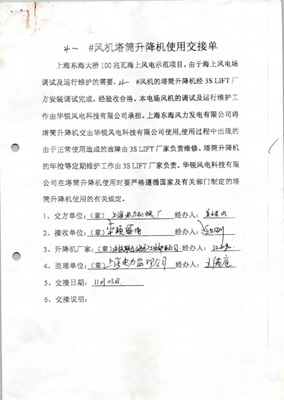 4~ #风机塔筒升降机使用交接单
上海东海大桥100兆瓦海上风电示范项目。由于海上风电场
调试及运行维护的需要。4~ #风机的塔筒升降机经3S LIFT厂
方安装调试完成。经验收合格。本电场风机的调试及运行维护工
作由华锐风电科技有限公司承担。上海东海风力发电有限公司将
塔筒升降机交由华锐风电科技有限公司使用,使用过程中出现的
由于正常使用造成的故障由3S LIFT厂家负责维修。塔筒升降机
的年检等定期维护工作由3S LIFT厂家负责。华锐风电科技有限
公司在塔筒升降机使用时要严格遵循国家及有关部门制定的塔
筒升降机使用的有关规定。
1、交方单位:(章) 经办人:
2、接收单位:(章) 华锐风电 经办人:
3、升降机厂家:(章) 经办人:
4、监理单位:(章) 上海电力监理公司 经办人:
5、交接日期: 11月03日
6、交接说明: